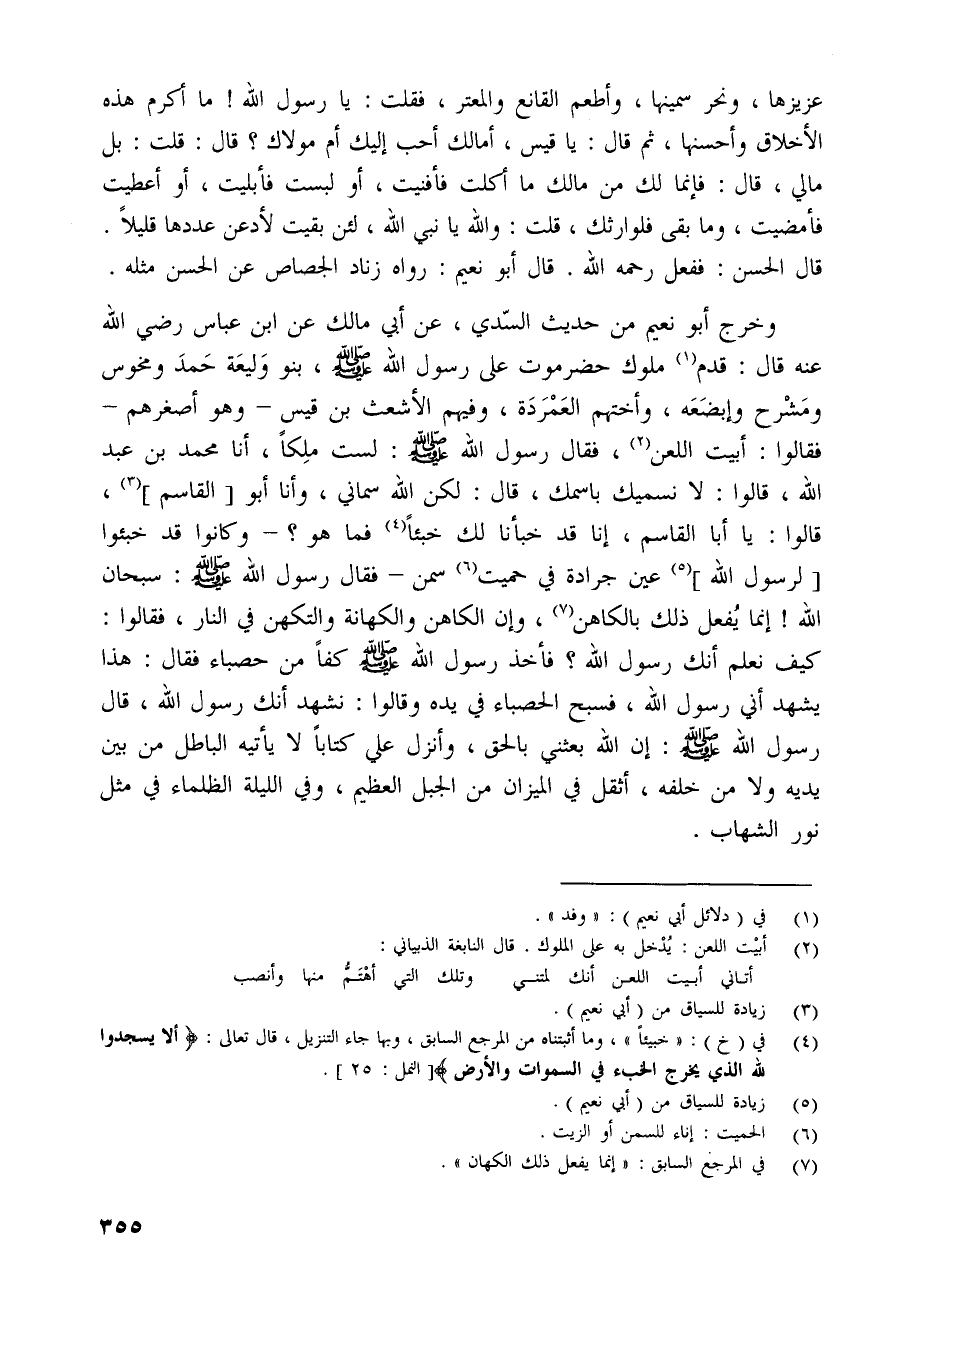 عزيزها ، ونحر سمينها ، وأطعم القانع والمعتر ، فقلت : يا رسول الله ! ما أكرم هذه
الأخلاق وأحسنها ، ثم قال : يا قيس ، أمالك أحب إليك أم مولاك ؟ قال : قلت : بل
مالي ، قال : فإنما لك من مالك ما أكلت فأفنيت ، أو لبست فأبليت ، أو أعطيت
فأمضيت ، وما بقى فلوارثك ، قلت : والله يا نبي الله ، لئن بقيت لأدعن عددها قليلاً .
قال الحسن : ففعل رحمه الله . قال أبو نعيم : رواه زناد الجصاص عن الحسن مثله .
وخرج أبو نعيم من حديث السّدي ، عن أبي مالك عن ابن عباس رضي الله
عنه قال : قدم(١) ملوك حضرموت على رسول الله ﷺ ، بنو وَليعَة حَمدَ ومخوس
ومَشْرح وإبضَعَه ، وأختهم العَمْرَدَة ، وفيهم الأشعث بن قيس – وهو أصغرهم –
فقالوا : أبيت اللعن(٢) ، فقال رسول الله ﷺ : لست ملِكاً ، أنا محمد بن عبد
الله ، قالوا : لا نسميك باسمك ، قال : لكن الله سماني ، وأنا أبو [ القاسم ](٣) ،
قالوا : يا أبا القاسم ، إنا قد خبأنا لك خبئاً(٤) فما هو ؟ – وكانوا قد خبئوا
[ لرسول الله ](٥) عين جرادة في حميت(٦) سمن – فقال رسول الله ﷺ : سبحان
الله ! إنما يُفعل ذلك بالكاهن(٧) ، وإن الكاهن والكهانة والتكهن في النار ، فقالوا :
كيف نعلم أنك رسول الله ؟ فأخذ رسول الله ﷺ كفاً من حصباء فقال : هذا
يشهد أني رسول الله ، فسبح الحصباء في يده وقالوا : نشهد أنك رسول الله ، قال
رسول الله ﷺ : إن الله بعثني بالحق ، وأنزل علي كتاباً لا يأتيه الباطل من بين
يديه ولا من خلفه ، أثقل في الميزان من الجبل العظيم ، وفي الليلة الظلماء في مثل
نور الشهاب .
(١) في ( دلائل أبي نعيم ) : « وفد » .
(٢) أبيْت اللعن : يُدْخل به على الملوك . قال النابغة الذبياني :
أتـاني أبـيت اللعـن أنك لمتنـي وتلك التي أهْتَـمُّ منها وأنصب
(٣) زيادة للسياق من ( أبي نعيم ) .
(٤) في ( خ ) : « خبيئاً » ، وما أثبتناه من المرجع السابق ، وبها جاء التنزيل ، قال تعالى : ﴿ ألا يسجدوا
لله الذي يخرج الخبء في السموات والأرض ﴾[ النمل : ٢٥ ] .
(٥) زيادة للسياق من ( أبي نعيم ) .
(٦) الحميت : إناء للسمن أو الزيت .
(٧) في المرجع السابق : « إنما يفعل ذلك الكهان » .
٣٥٥